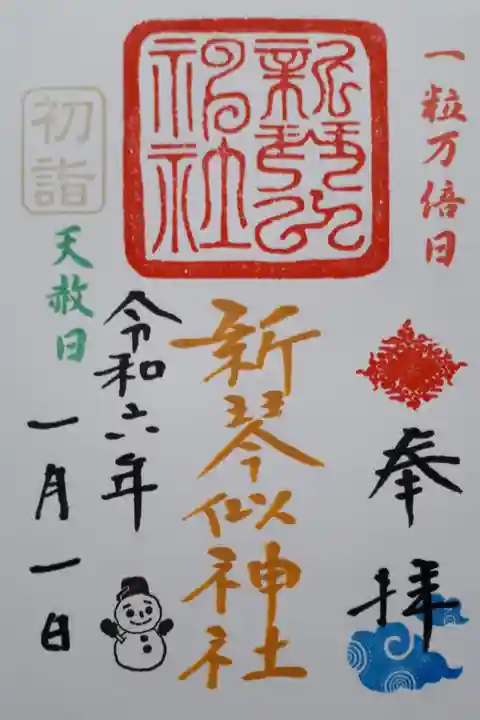 一粒万倍日
奉拝
新琴似神社
新琴似神社
初詣
天赦日
令和六年
一月一日